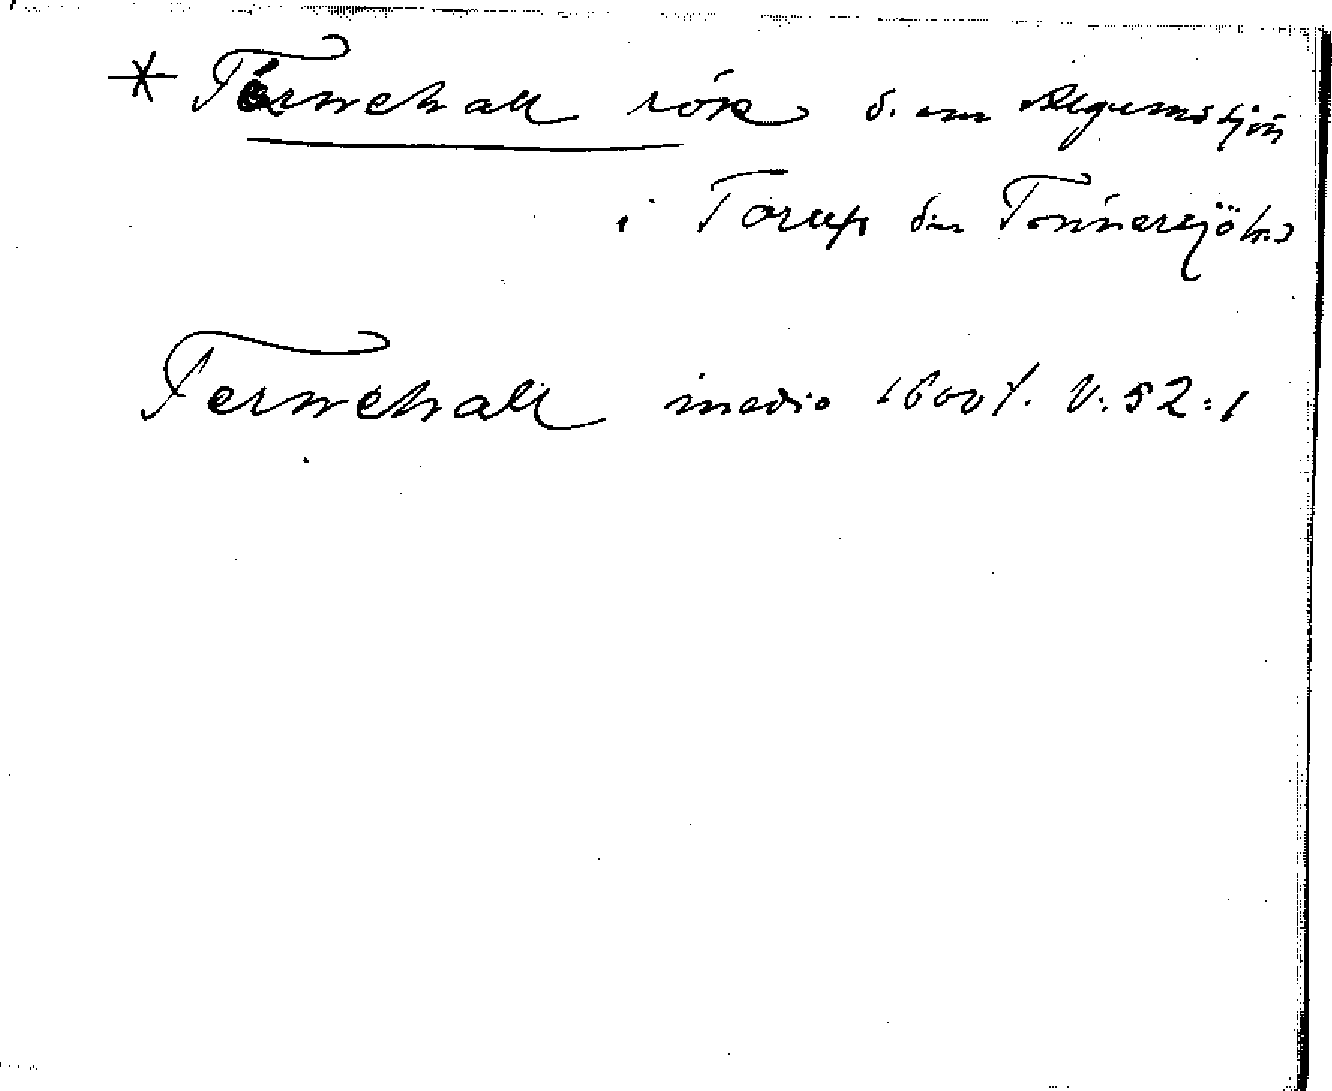 * Ternehall rör s. om Algustsjön
i Torup sn Tönnersjö hd
Ternehall medio 1600 t. V: 52:1